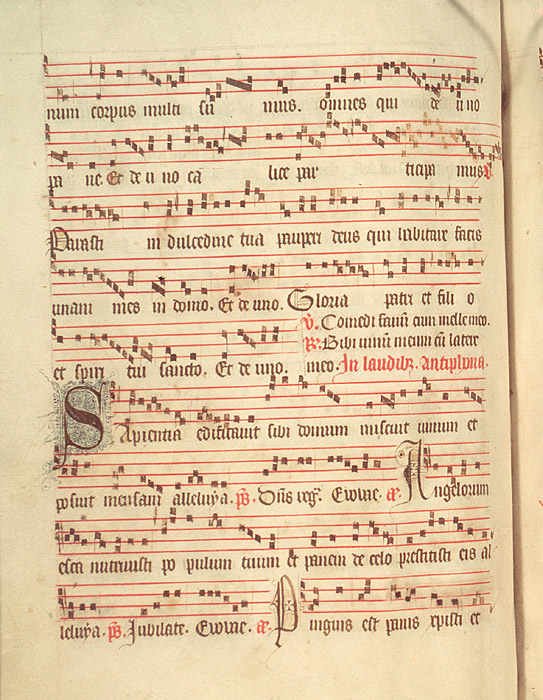 num corpus multi su mus. omnes qui de uno
pa ne Et de u no ca lice par ticipa mus V.
Parasti in dulcedine tua pauperi deus qui habitare facis
unani mes in domo. Et de uno. Gloria patri et fili o
V. Comedi favum cum melle meo.
et spiri tui sancto. Et de uno. R. Bibi vinum meum cum lacte
meo. In laudibz. Antiphona.
Sapientia edificavit sibi domum miscuit vinum et
posuit mensam alleluya. ps. Dns reg. Evovae. ae. Angelorum
esca nutrivisti po pulum tuum et panem de celo prestitisti eis al
leluya. ps. Jubilate. Evovae. ae. Pinguis est panis xpisti et